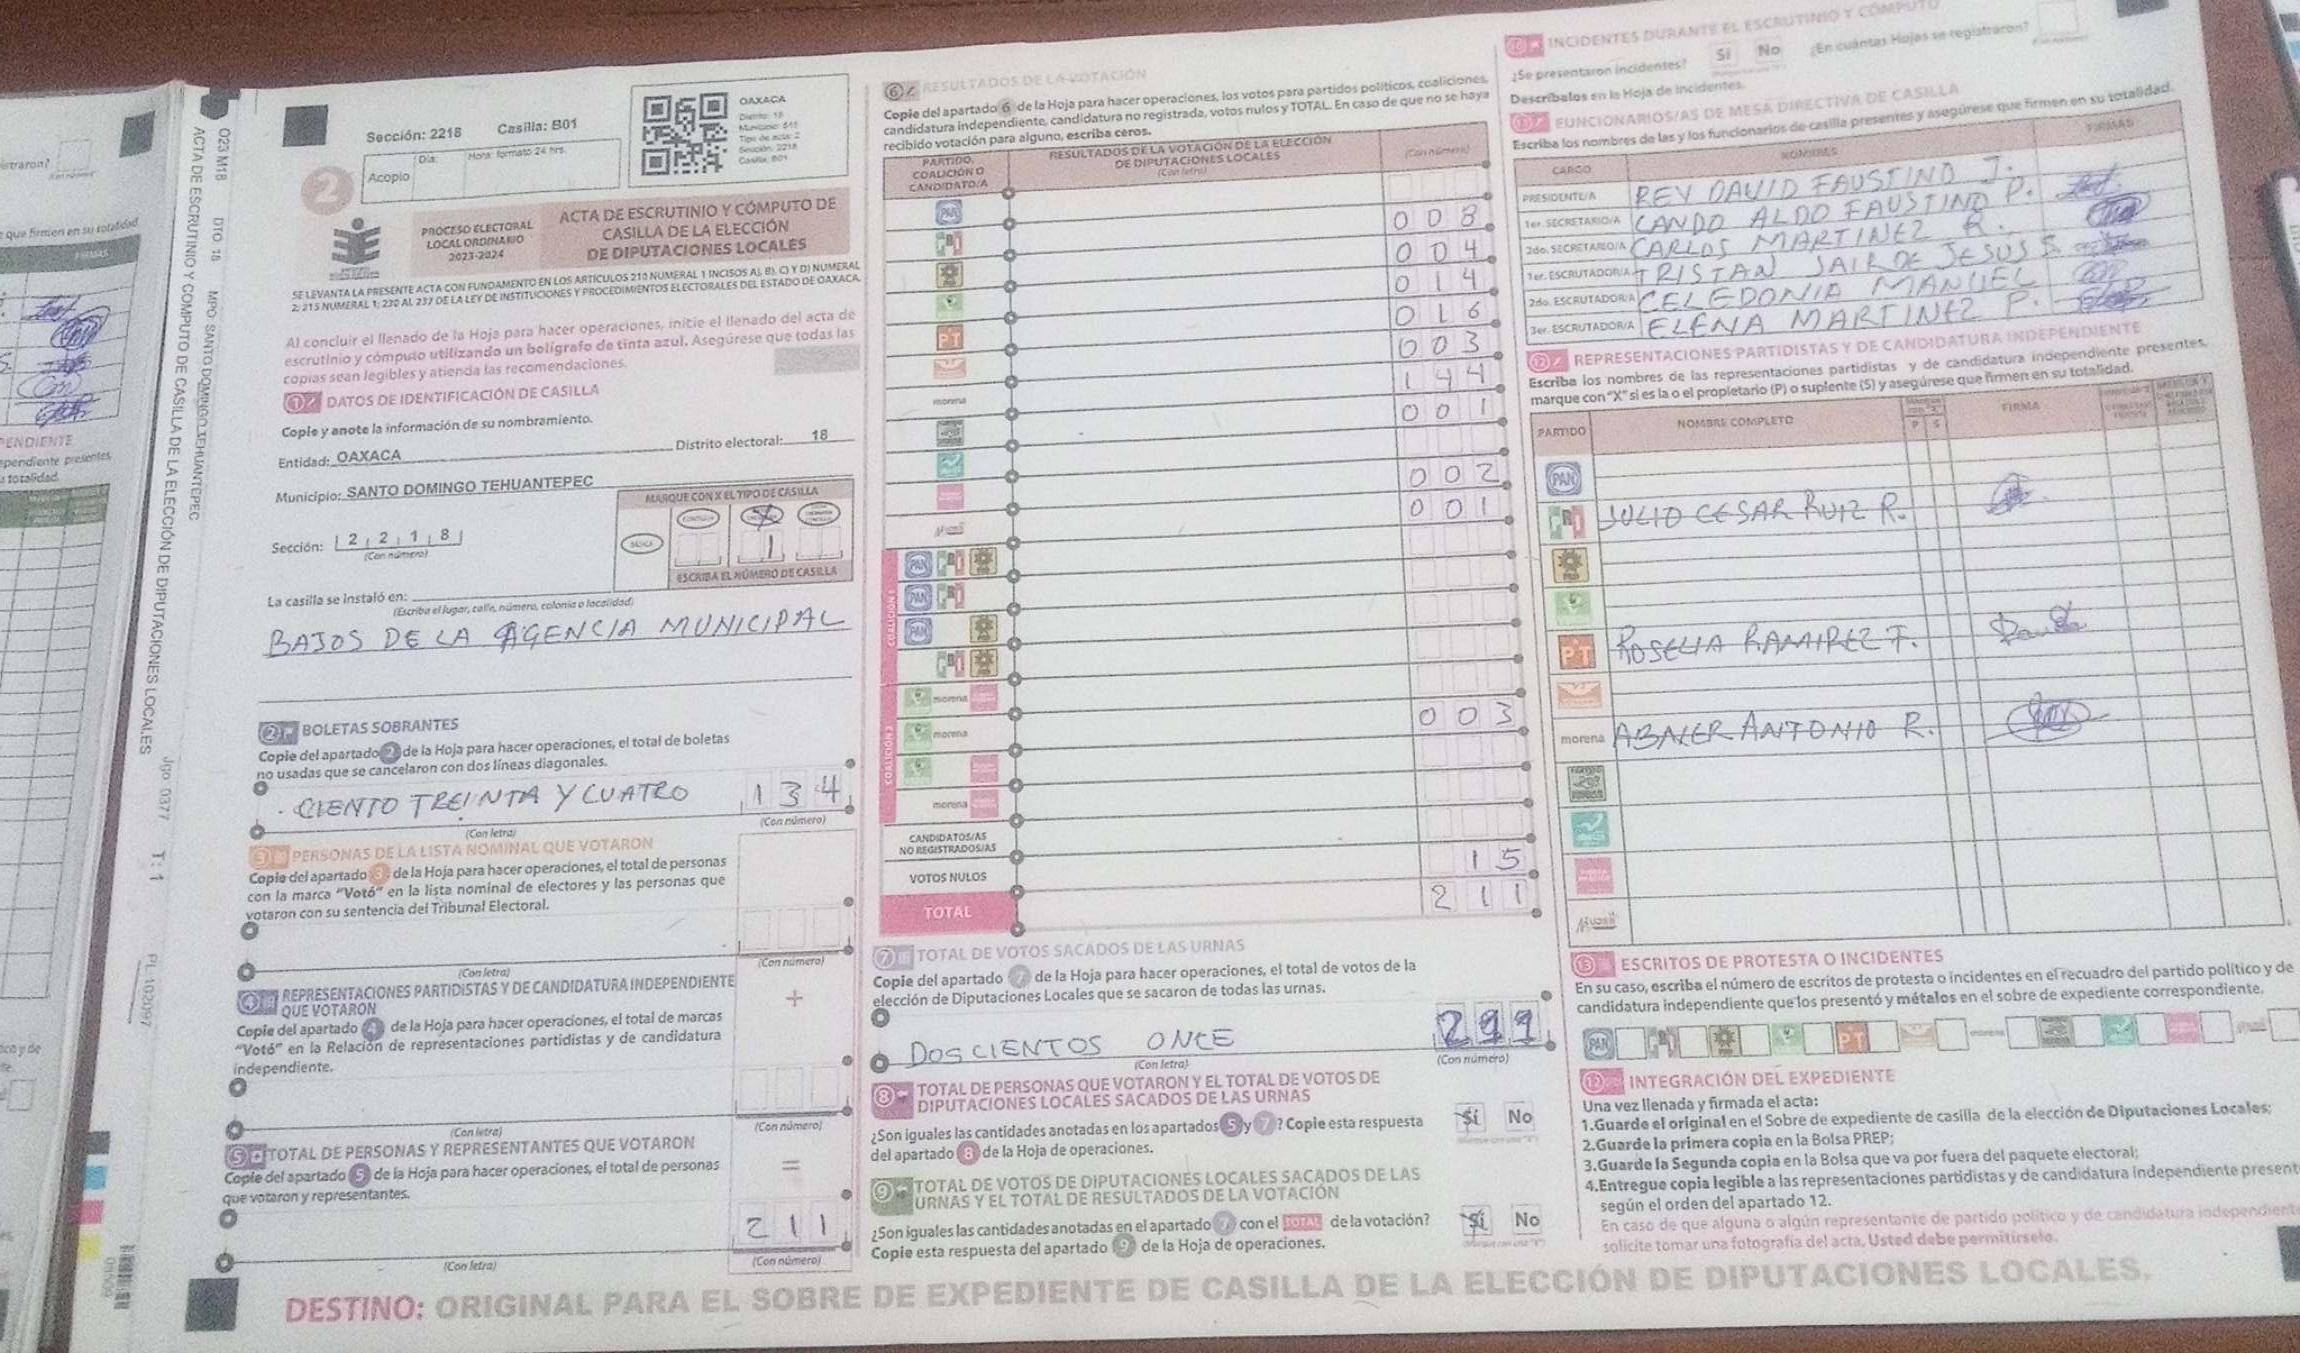 Sección: 2218 Casilla: B01
Acopio Día: Hora: formato 24 hrs.
OAXACA
Distrito: 18
Tipo de acta: 2
Sección: 2218
Casilla: B01
2
PROCESO ELECTORAL
LOCAL ORDINARIO
2023-2024
ACTA DE ESCRUTINIO Y CÓMPUTO DE
CASILLA DE LA ELECCIÓN
DE DIPUTACIONES LOCALES
SE LEVANTA LA PRESENTE ACTA CON FUNDAMENTO EN LOS ARTÍCULOS 210 NUMERAL 1 INCISOS A), B), C) Y D) NUMERAL
2; 215 NUMERAL 1; 230 AL 237 DE LA LEY DE INSTITUCIONES Y PROCEDIMIENTOS ELECTORALES DEL ESTADO DE OAXACA.
Al concluir el llenado de la Hoja para hacer operaciones, inicie el llenado del acta de
escrutinio y cómputo utilizando un bolígrafo de tinta azul. Asegúrese que todas las
copias sean legibles y atienda las recomendaciones.
1 DATOS DE IDENTIFICACIÓN DE CASILLA
Copie y anote la información de su nombramiento.
Entidad: OAXACA Distrito electoral: 18
Municipio: SANTO DOMINGO TEHUANTEPEC
MARQUE CON X EL TIPO DE CASILLA
Sección: 2 2 1 8
(Con número)
BÁSICA
1
ESCRIBA EL NÚMERO DE CASILLA
La casilla se instaló en:
(Escriba el lugar, calle, número, colonia o localidad)
BAJOS DE LA AGENCIA MUNICIPAL
2 BOLETAS SOBRANTES
Copie del apartado 2 de la Hoja para hacer operaciones, el total de boletas
no usadas que se cancelaron con dos líneas diagonales.
CIENTO TREINTA Y CUATRO 134
(Con letra) (Con número)
3 PERSONAS DE LA LISTA NOMINAL QUE VOTARON
Copie del apartado 3 de la Hoja para hacer operaciones, el total de personas
con la marca “Votó” en la lista nominal de electores y las personas que
votaron con su sentencia del Tribunal Electoral.
(Con letra) (Con número)
4 REPRESENTACIONES PARTIDISTAS Y DE CANDIDATURA INDEPENDIENTE
QUE VOTARON
+
Copie del apartado 4 de la Hoja para hacer operaciones, el total de marcas
“Votó” en la Relación de representaciones partidistas y de candidatura
independiente.
(Con letra) (Con número)
5 TOTAL DE PERSONAS Y REPRESENTANTES QUE VOTARON
=
Copie del apartado 5 de la Hoja para hacer operaciones, el total de personas
que votaron y representantes.
211
(Con letra) (Con número)
6 RESULTADOS DE LA VOTACIÓN
Copie del apartado 6 de la Hoja para hacer operaciones, los votos para partidos políticos, coaliciones,
candidatura independiente, candidatura no registrada, votos nulos y TOTAL. En caso de que no se haya
recibido votación para alguno, escriba ceros.
PARTIDO,
COALICIÓN O
CANDIDATO/A
RESULTADOS DE LA VOTACIÓN DE LA ELECCIÓN
DE DIPUTACIONES LOCALES
(Con letra)
(Con número)
PAN
008
PRI
004
014
016
PT
003
144
morena
001
002
001
COALICIÓN 1
PAN PRI
PAN PRI
PAN
PRI
COALICIÓN 2
morena
003
morena
morena
CANDIDATOS/AS
NO REGISTRADOS/AS
VOTOS NULOS
15
TOTAL
211
7 TOTAL DE VOTOS SACADOS DE LAS URNAS
Copie del apartado 7 de la Hoja para hacer operaciones, el total de votos de la
elección de Diputaciones Locales que se sacaron de todas las urnas.
DOSCIENTOS ONCE 211
(Con letra) (Con número)
8 TOTAL DE PERSONAS QUE VOTARON Y EL TOTAL DE VOTOS DE
DIPUTACIONES LOCALES SACADOS DE LAS URNAS
¿Son iguales las cantidades anotadas en los apartados 5 y 7? Copie esta respuesta
del apartado 8 de la Hoja de operaciones.
Sí No
9 TOTAL DE VOTOS DE DIPUTACIONES LOCALES SACADOS DE LAS
URNAS Y EL TOTAL DE RESULTADOS DE LA VOTACIÓN
¿Son iguales las cantidades anotadas en el apartado 7 con el TOTAL de la votación?
Copie esta respuesta del apartado 9 de la Hoja de operaciones.
Sí No
INCIDENTES DURANTE EL ESCRUTINIO Y CÓMPUTO
¿Se presentaron incidentes? Sí No ¿En cuántas Hojas se registraron?
Descríbalos en la Hoja de incidentes.
11 FUNCIONARIOS/AS DE MESA DIRECTIVA DE CASILLA
Escriba los nombres de las y los funcionarios de casilla presentes y asegúrese que firmen en su totalidad.
CARGO NOMBRES FIRMAS
PRESIDENTE/A REY DAVID FAUSTINO J.
1er. SECRETARIO/A CANDO ALDO FAUSTINO P.
2do. SECRETARIO/A CARLOS MARTINEZ R.
1er. ESCRUTADOR/A TRISTAN JAIR DE JESUS S.
2do. ESCRUTADOR/A CELEDONIA MANUEL
3er. ESCRUTADOR/A ELENA MARTINEZ P.
12 REPRESENTACIONES PARTIDISTAS Y DE CANDIDATURA INDEPENDIENTE
Escriba los nombres de las representaciones partidistas y de candidatura independiente presentes,
marque con “X” si es la o el propietario (P) o suplente (S) y asegúrese que firmen en su totalidad.
PARTIDO NOMBRE COMPLETO P S FIRMA
PAN
PRI JULIO CESAR RUIZ R.
PRD
PT ROSELIA RAMIREZ F.
morena ABNER ANTONIO R.
13 ESCRITOS DE PROTESTA O INCIDENTES
En su caso, escriba el número de escritos de protesta o incidentes en el recuadro del partido político y de
candidatura independiente que los presentó y métalos en el sobre de expediente correspondiente.
PAN PRI PT morena
12 INTEGRACIÓN DEL EXPEDIENTE
Una vez llenada y firmada el acta:
1.Guarde el original en el Sobre de expediente de casilla de la elección de Diputaciones Locales;
2.Guarde la primera copia en la Bolsa PREP;
3.Guarde la Segunda copia en la Bolsa que va por fuera del paquete electoral;
4.Entregue copia legible a las representaciones partidistas y de candidatura independiente present
según el orden del apartado 12.
En caso de que alguna o algún representante de partido político y de candidatura independient
solicite tomar una fotografía del acta, Usted debe permitírselo.
DESTINO: ORIGINAL PARA EL SOBRE DE EXPEDIENTE DE CASILLA DE LA ELECCIÓN DE DIPUTACIONES LOCALES.
023 M18 DTO. 18 MPO. SANTO DOMINGO TEHUANTEPEC Jgo. 0377 T: 1 PL 102097
ACTA DE ESCRUTINIO Y CÓMPUTO DE CASILLA DE LA ELECCIÓN DE DIPUTACIONES LOCALES